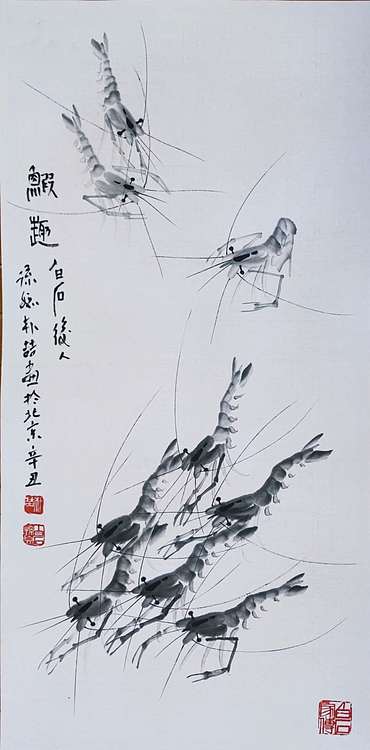 鰕趣
白石後人
孫媳朴喆畫於北京辛丑
白石家傳